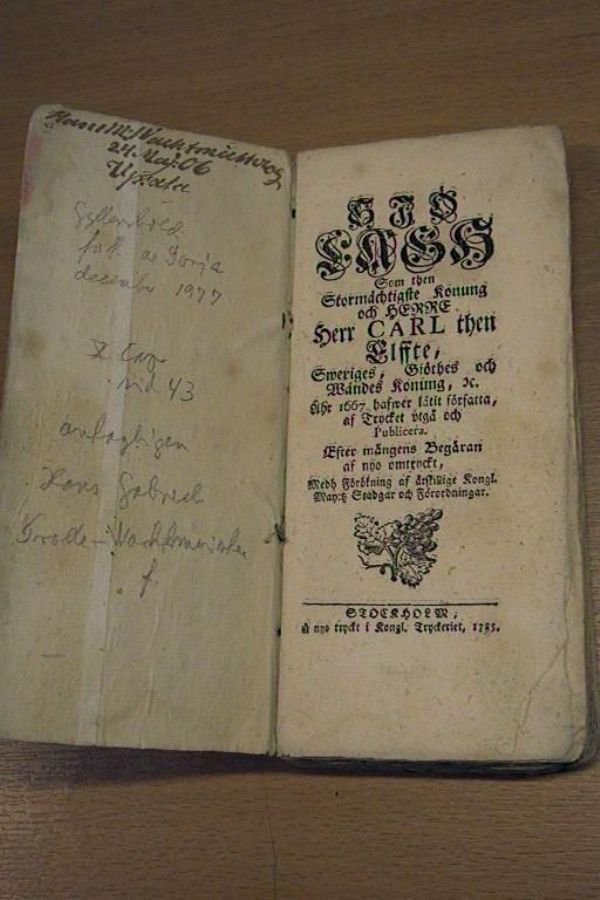 24. Maj. 06
Upsala
december 1977
sid 43
antagligen
Hans Gabriel
f.
SIÖ
LAGH
Som then
Stormächtigste Konung
och HERRE
Herr CARL then
Elffte,
Sweriges, Giöthes och
Wändes Konung, ꝛc.
Åhr 1667 hafwer låtit författa,
af Trycket utgå och
Publicera.
Efter mångens Begäran
af nyo omtryckt,
Medh Förökning af åtskillige Kongl.
May:tz Stadgar och Förordningar.
STOCKHOLM,
å nyo tryckt i Kongl. Tryckeriet, 1785.